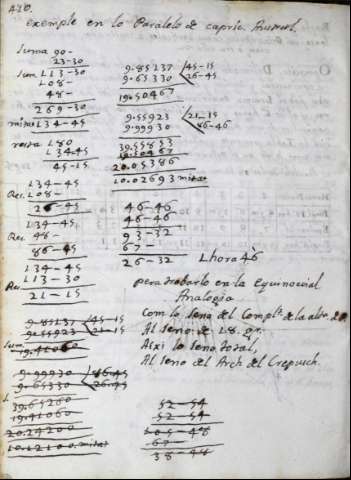 420.
exemple en lo Paralelo de capric. Austral.
Suma 90-
23-30
Sum 113-30
108-
48-
269-30
mitat 134-45
resta 180
134.45
45-15
134-45
Res. 108-
26-45
134-45
Res. 48-
86-45
134-45
113-30
Res
21-15
9.85137 45-15
9.65330 26-45
19.50467
9.55923 21-15
9.99930 86-46
39.55853
19.50467
20.05386
10.02693 mitat
46-46
46-46
93-32
67-
26-32 Lhora 46
pera trobarlo en la Equinocial
Analogia
Com lo seno del Complt. de la altu.
Al seno de 18. gr.
Aixi lo seno total,
Al seno del Arch del Crepusch.
9.85137 45-15
9.55923 21-15
Sum
19.41060
9.99930 86.45
9.65330 26.45
39.65260
19.41060
20.24200
10.12100 mitat
52-54
52-54
105-48
67-
38-48